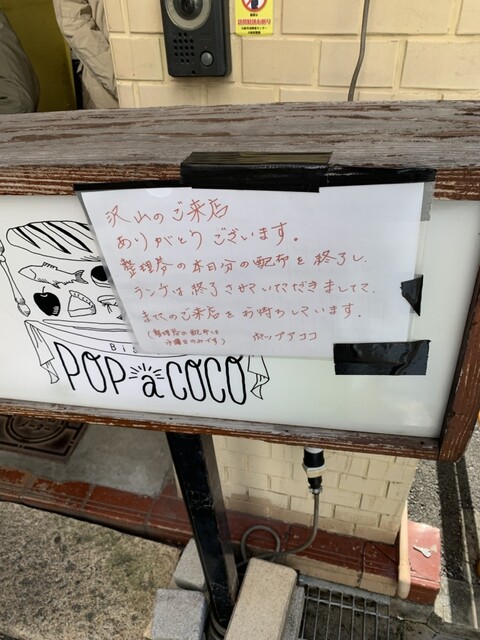 沢山のご来店
ありがとうございます。
整理券の本日分の配布を終了し、
ランチは終了させていただきまして、
またのご来店をお待ちしています。
(整理券の配布は
水曜日のみです)
ポップアココ
Bis
POP a COCO